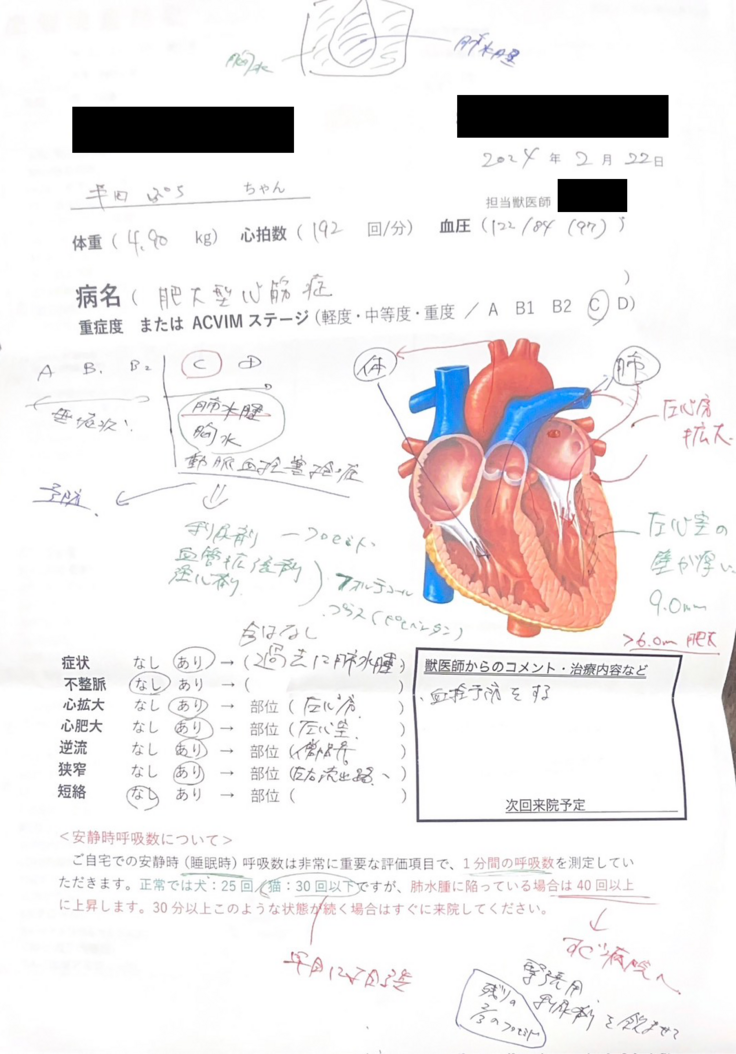 胸水
肺水腫
2024 年 2 月 22日
ちゃん
担当獣医師
体重 ( 4.90 kg) 心拍数 ( 192 回/分) 血圧 (122/84 (97) )
病名 ( 肥大型心筋症 )
重症度 または ACVIM ステージ (軽度・中等度・重度 / A B1 B2 C D)
A B1 B2 C D
体
肺
無症状
肺水腫
胸水
動脈血栓塞栓症
左心房
拡大
予防
利尿剤
血管拡張剤
強心剤
フォルテコール
プラス (ピモベンダン)
左心室の
壁が厚い
9.0mm
>6.0mm 肥大
今はなし
症状 なし あり → (過去に肺水腫)
不整脈 なし あり → ( )
心拡大 なし あり → 部位 (左心房)
心肥大 なし あり → 部位 (左心室)
逆流 なし あり → 部位 ( )
狭窄 なし あり → 部位 (左右流出路)
短絡 なし あり → 部位 ( )
獣医師からのコメント・治療内容など
血栓予防をする
次回来院予定
<安静時呼吸数について>
ご自宅での安静時 (睡眠時) 呼吸数は非常に重要な評価項目で、1 分間の呼吸数を測定してい
ただきます。正常では犬：25 回、猫：30 回以下ですが、肺水腫に陥っている場合は 40 回以上
に上昇します。30 分以上このような状態が続く場合はすぐに来院してください。
すぐ病院へ
緊急用
利尿剤を飲ませて
残りの
2/3の